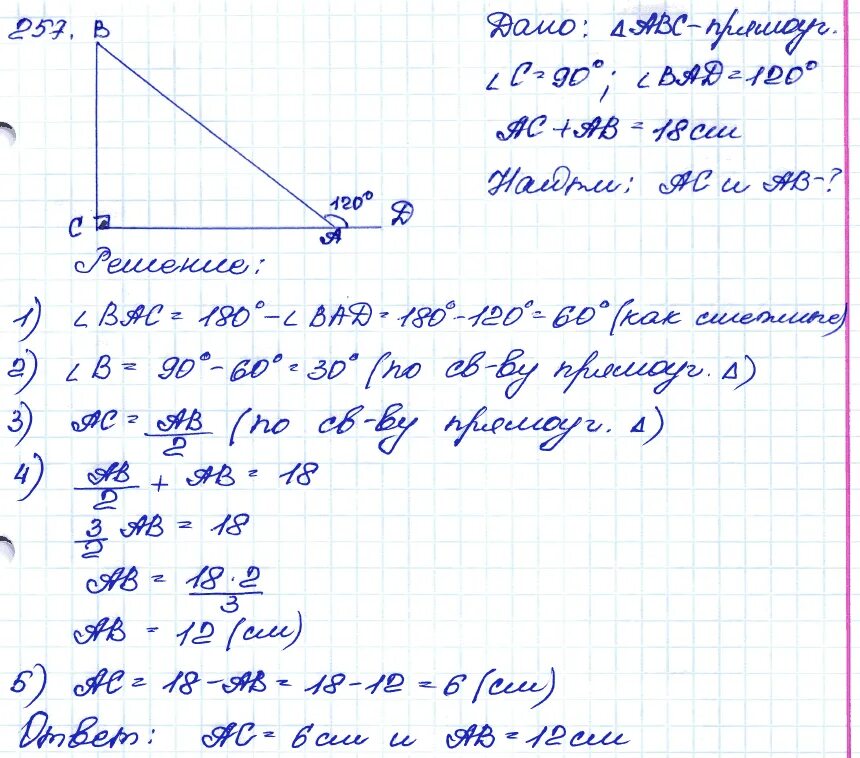 257.
B
C
A
120°
D
Дано: △ABC-прямоуг.
∠C=90°; ∠BAD=120°
AC+AB=18см
Найти: AC и AB-?
Решение:
1) ∠BAC = 180°-∠BAD=180°-120°=60° (как смежные)
2) ∠B = 90°-60°=30° (по св-ву прямоуг. △)
3) AC = AB/2 (по св-ву прямоуг. △)
4) AB/2 + AB = 18
3/2 AB = 18
AB = 18·2/3
AB = 12 (см)
5) AC = 18-AB = 18-12 = 6 (см)
Ответ: AC = 6см и AB = 12см